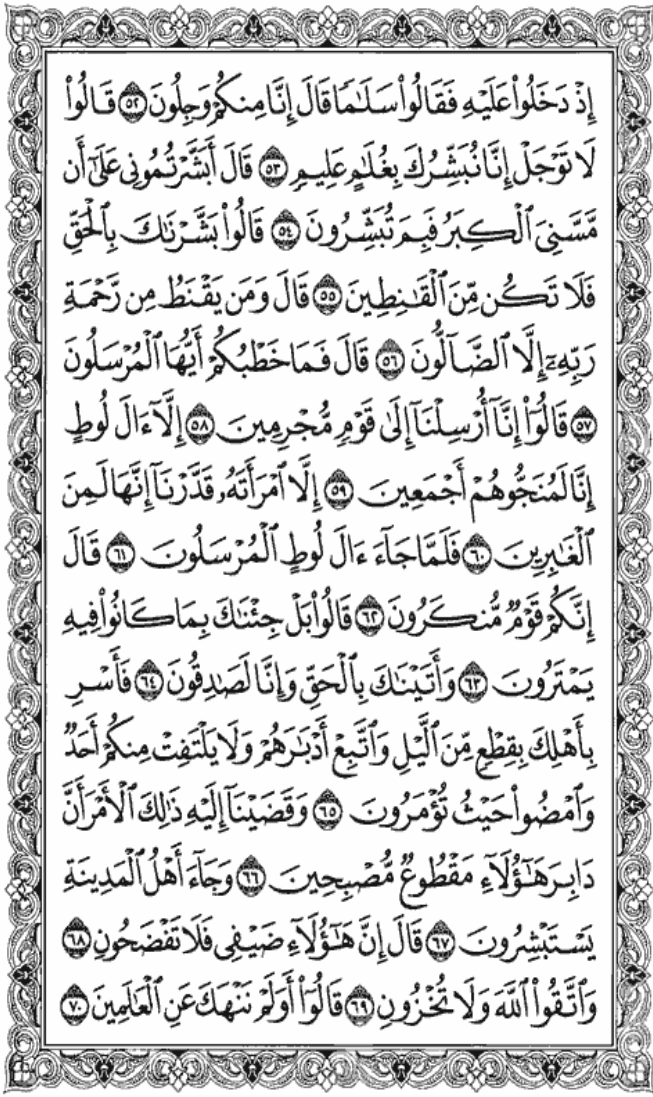 إِذْ دَخَلُواْ عَلَيْهِ فَقَالُواْ سَلَٰمًا قَالَ إِنَّا مِنكُمْ وَجِلُونَ ٥٢ قَالُواْ
لَا تَوْجَلْ إِنَّا نُبَشِّرُكَ بِغُلَٰمٍ عَلِيمٍ ٥٣ قَالَ أَبَشَّرْتُمُونِى عَلَىٰٓ أَن
مَّسَّنِىَ ٱلْكِبَرُ فَبِمَ تُبَشِّرُونَ ٥٤ قَالُواْ بَشَّرْنَٰكَ بِٱلْحَقِّ
فَلَا تَكُن مِّنَ ٱلْقَٰنِطِينَ ٥٥ قَالَ وَمَن يَقْنَطُ مِن رَّحْمَةِ
رَبِّهِۦٓ إِلَّا ٱلضَّآلُّونَ ٥٦ قَالَ فَمَا خَطْبُكُمْ أَيُّهَا ٱلْمُرْسَلُونَ
٥٧ قَالُوٓاْ إِنَّآ أُرْسِلْنَآ إِلَىٰ قَوْمٍ مُّجْرِمِينَ ٥٨ إِلَّآ ءَالَ لُوطٍ
إِنَّا لَمُنَجُّوهُمْ أَجْمَعِينَ ٥٩ إِلَّا ٱمْرَأَتَهُۥ قَدَّرْنَآ إِنَّهَا لَمِنَ
ٱلْغَٰبِرِينَ ٦٠ فَلَمَّا جَآءَ ءَالَ لُوطٍ ٱلْمُرْسَلُونَ ٦١ قَالَ
إِنَّكُمْ قَوْمٌ مُّنكَرُونَ ٦٢ قَالُواْ بَلْ جِئْنَٰكَ بِمَا كَانُواْ فِيهِ
يَمْتَرُونَ ٦٣ وَأَتَيْنَٰكَ بِٱلْحَقِّ وَإِنَّا لَصَٰدِقُونَ ٦٤ فَأَسْرِ
بِأَهْلِكَ بِقِطْعٍ مِّنَ ٱلَّيْلِ وَٱتَّبِعْ أَدْبَٰرَهُمْ وَلَا يَلْتَفِتْ مِنكُمْ أَحَدٌ
وَٱمْضُواْ حَيْثُ تُؤْمَرُونَ ٦٥ وَقَضَيْنَآ إِلَيْهِ ذَٰلِكَ ٱلْأَمْرَ أَنَّ
دَابِرَ هَٰٓؤُلَآءِ مَقْطُوعٌ مُّصْبِحِينَ ٦٦ وَجَآءَ أَهْلُ ٱلْمَدِينَةِ
يَسْتَبْشِرُونَ ٦٧ قَالَ إِنَّ هَٰٓؤُلَآءِ ضَيْفِى فَلَا تَفْضَحُونِ ٦٨
وَٱتَّقُواْ ٱللَّهَ وَلَا تُخْزُونِ ٦٩ قَالُوٓاْ أَوَلَمْ نَنْهَكَ عَنِ ٱلْعَٰلَمِينَ ٧٠